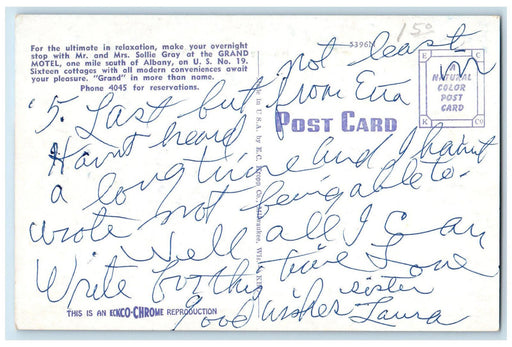 For the ultimate in relaxation, make your overnight
stop with Mr. and Mrs. Sollie Gray at the GRAND
MOTEL, one mile south of Albany, on U. S. No. 19.
Sixteen cottages with all modern conveniences await
your pleasure. "Grand" in more than name.
Phone 4045 for reservations.
15⁰
5396N
E C
NATURAL
COLOR
POST
CARD
K Co
POST CARD
'5. Last but not least
Haint heard from Etta in
a long time and I haint
wrote not being able to.
Well all I can
Write for this time Love
Good wishes sister
Laura
THIS IS AN EKNCO-CHROME REPRODUCTION